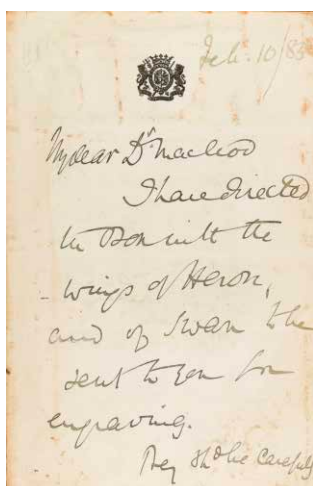 Feb. 10/83
My dear Dr. Macleod
I have directed
the Box with the
wings of Heron,
and of Swan to be
sent to you for
engraving.
They shd be carefully